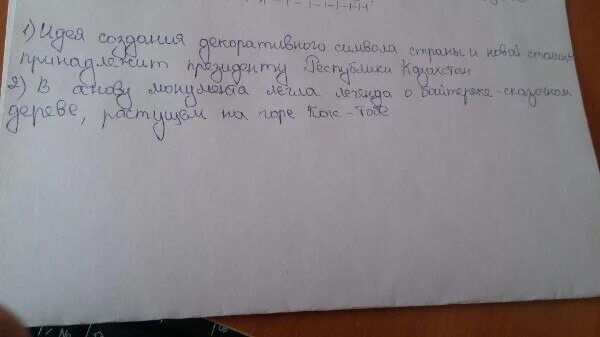 1) Идея создания декоративного символа страны и новой столицы
принадлежит президенту Республики Казахстан
2) В основу монумента легла легенда о байтереке-сказочном
дереве, растущем на горе Кок-Тобе